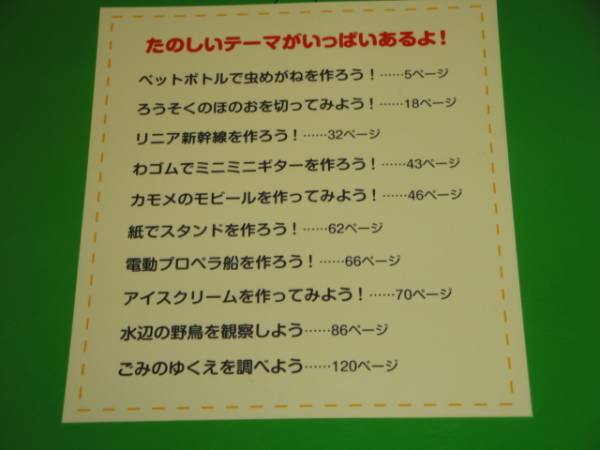 たのしいテーマがいっぱいあるよ！
ペットボトルで虫めがねを作ろう！……5ページ
ろうそくのほのおを切ってみよう！……18ページ
リニア新幹線を作ろう！……32ページ
わゴムでミニミニギターを作ろう！……43ページ
カモメのモビールを作ってみよう！……46ページ
紙でスタンドを作ろう！……62ページ
電動プロペラ船を作ろう！……66ページ
アイスクリームを作ってみよう！……70ページ
水辺の野鳥を観察しよう……86ページ
ごみのゆくえを調べよう……120ページ